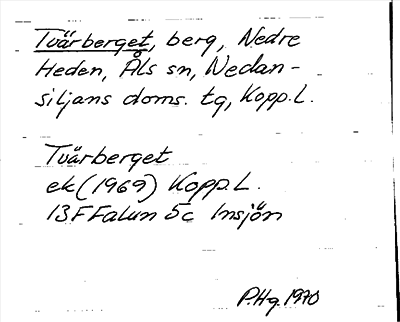 Tvärberget, berg, Nedre
Heden, Åls sn, Nedan-
siljans doms. tg, Kopp. L.
Tvärberget
ek (1969) Kopp. L.
13F Falun 5c Insjön
P.Hg. 1970